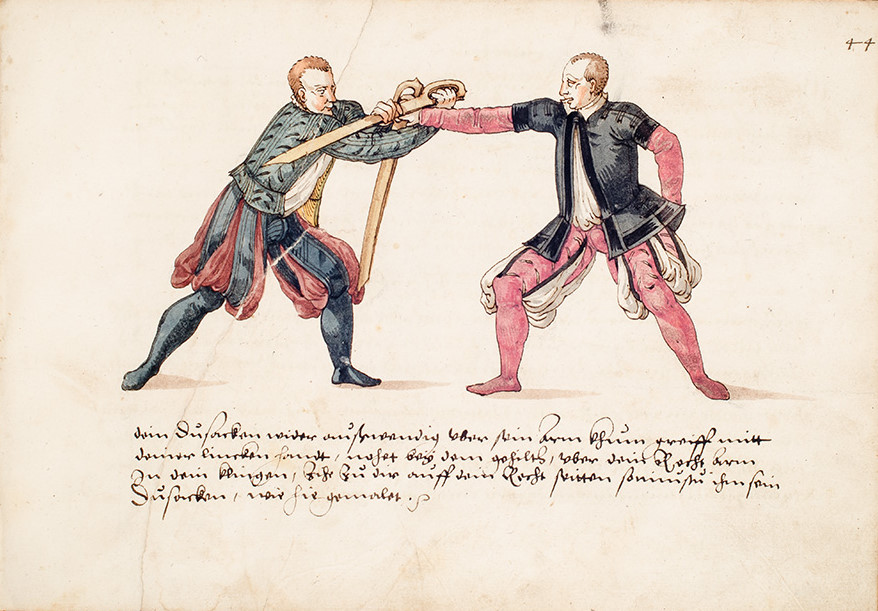 44
dein Dusacken wider auswendig vber sein Arm khum greiff mitt
deiner lincken handt, nahet bey dem gehiltz, vber dein Recht Arm
In dein klingen, Ziehe Zu dir auff dein Recht seitten so nimstu ihm sein
Dusacken, wie hie gemalet.